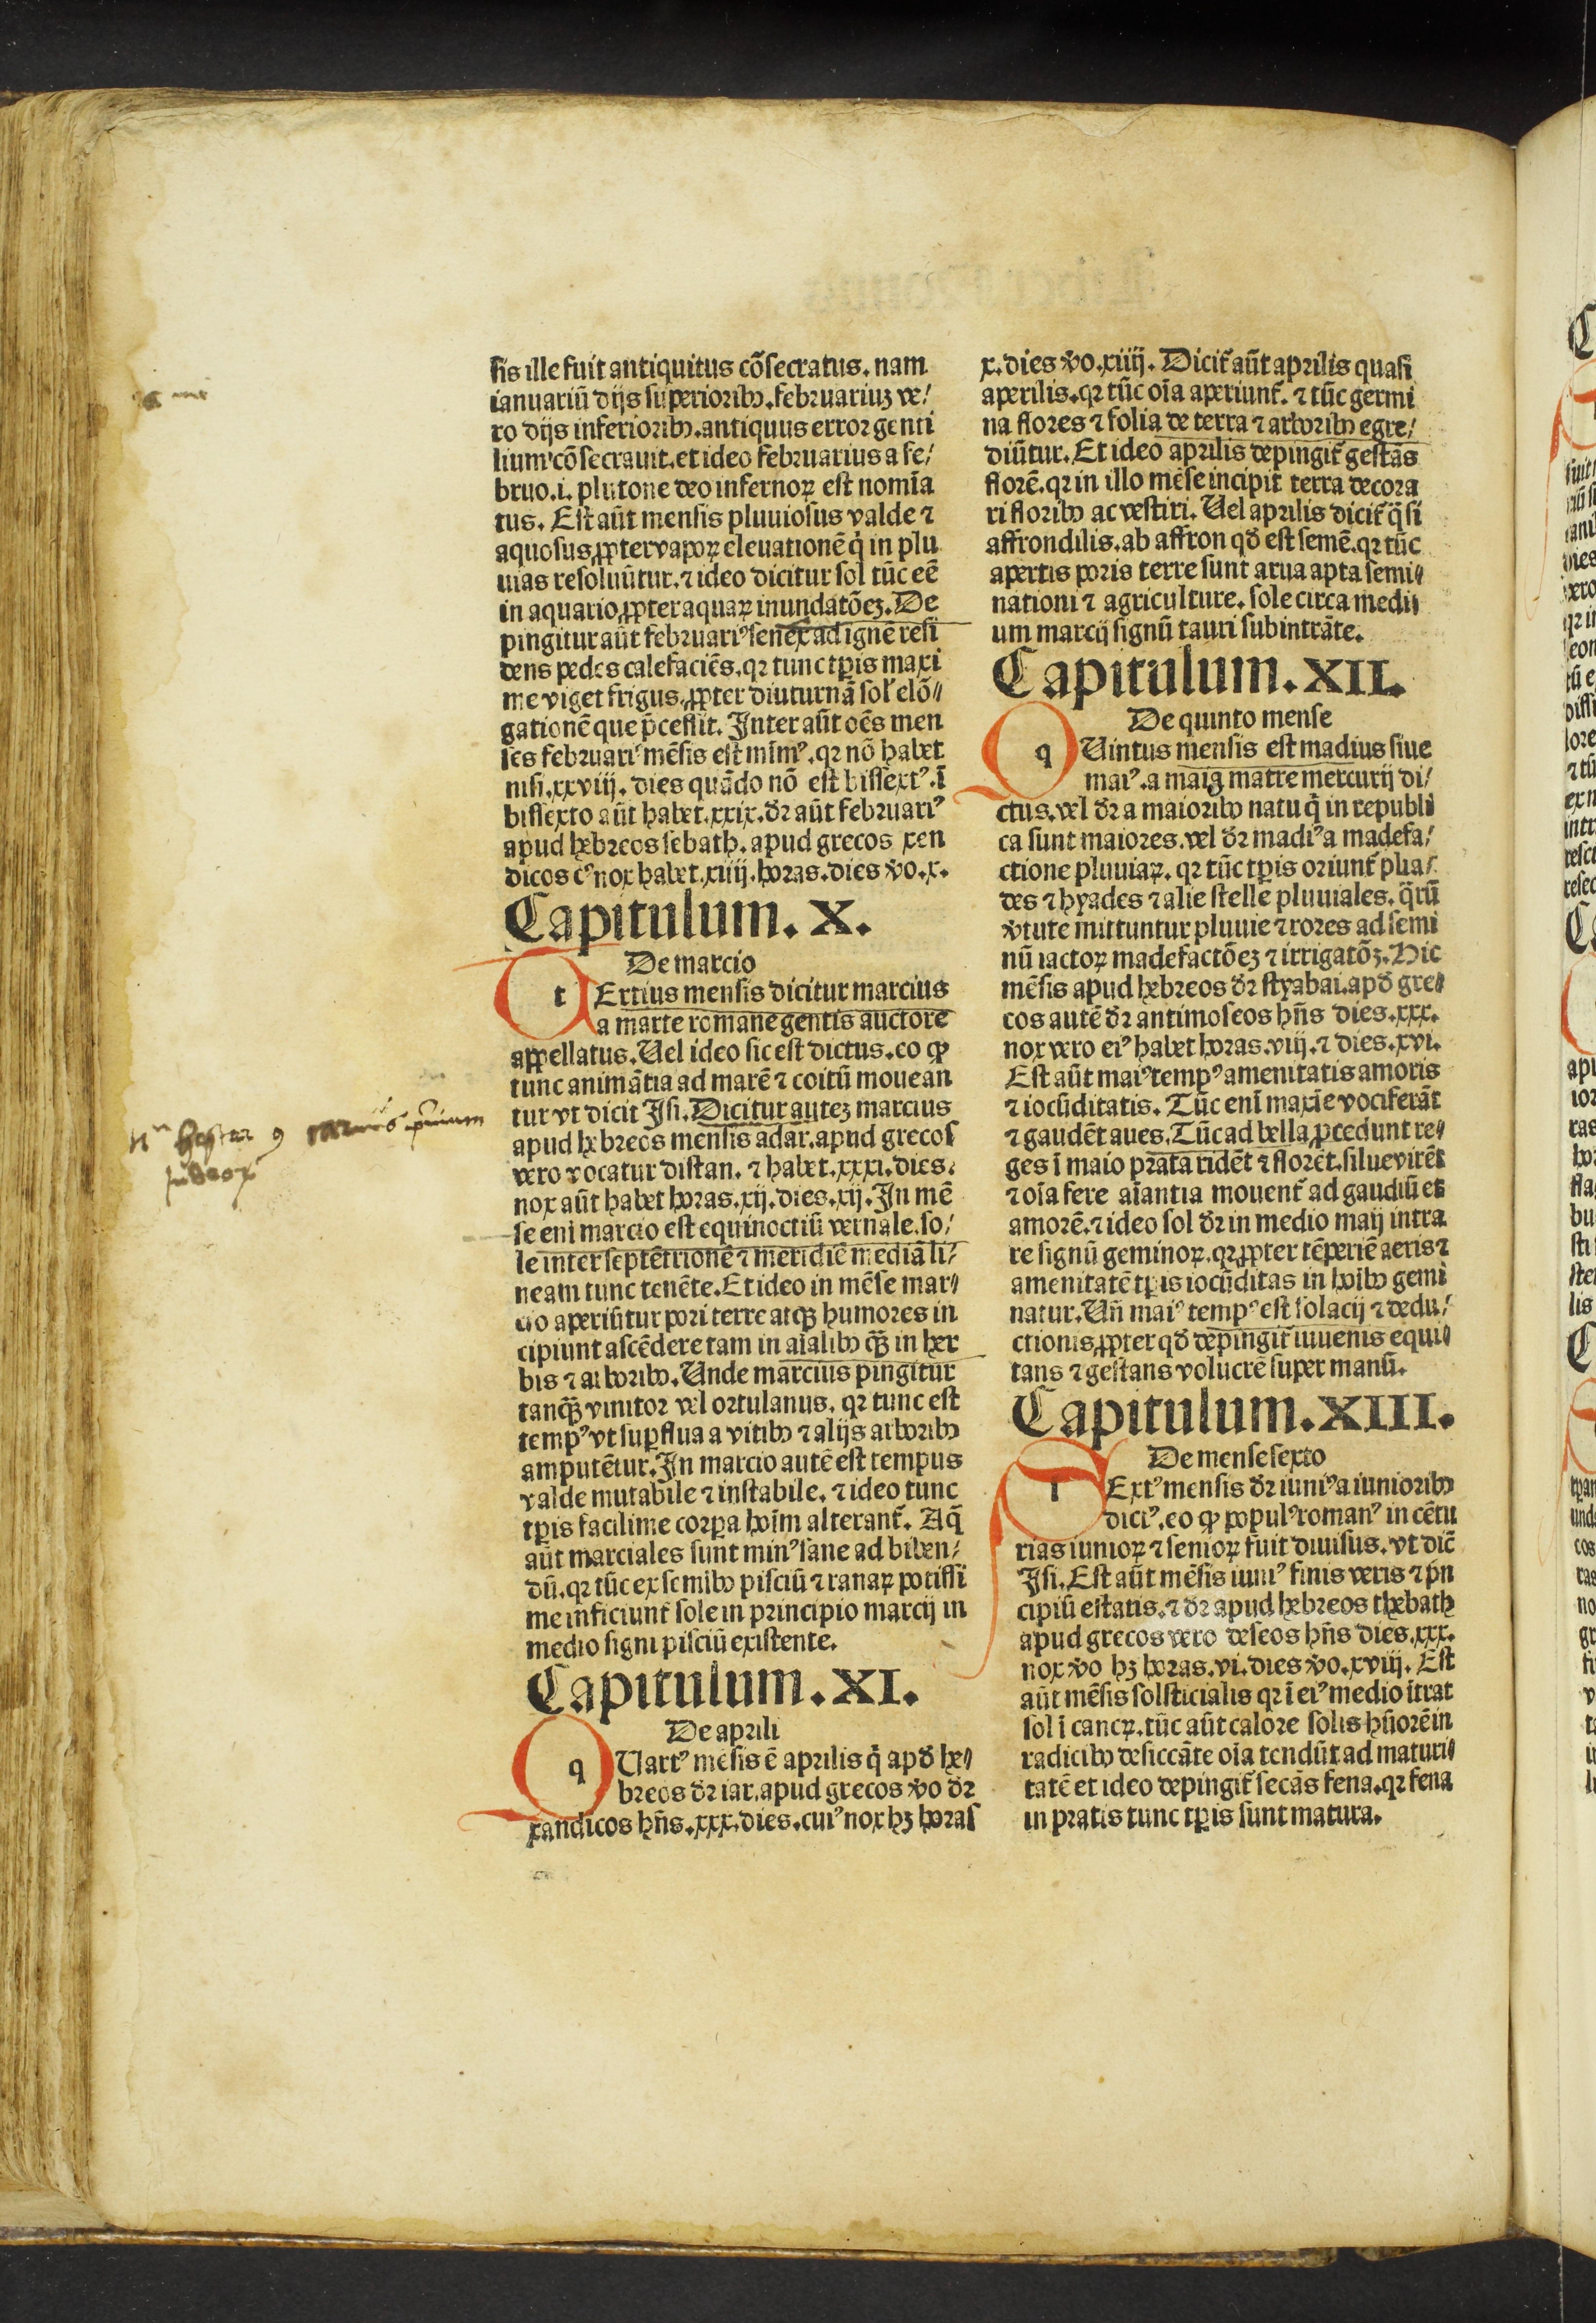 sis ille fuit antiquitus cõsecratus. nam
ianuariũ dijs superioribꝰ. februariuꝫ ve/
ro dijs inferioribꝰ. antiquus error genti
lium cõsecrauit. et ideo februarius a fe/
bruo .i. plutone deo infernoꝝ est nomĩa
tus. Est aũt mensis pluuiosus valde ⁊
aquosus ꝓpter vapoꝝ eleuationẽ q̇ in plu
uias resoluũtur. ⁊ ideo dicitur sol tũc eẽ
in aquario ꝓpter aquaꝝ inundatõeꝫ. De
pingitur aũt februariꝰ senex ad ignẽ resi
dens pedes calefaciẽs. qꝛ tunc tꝑis maxi
me viget frigus. ꝓpter diuturnã sol' elõ/
gationẽ que p̃cessit. Inter aũt oẽs men
ses februariꝰ mẽsis est mĩmꝰ. qꝛ nõ habet
nisi .xxviij. dies quãdo nõ est bissextꝰ. ĩ
bissexto aũt habet .xxix. dꝛ aũt februariꝰ
apud hebreos sebath. apud grecos xen
dicos cꝰ nox habet .xiiij. horas. dies ṽo .x.
Capitulum. X.
De marcio
t ERtius mensis dicitur marcius
a marte romane gentis auctore
appellatus. Uel ideo sic est dictus. eo ꝙ
tunc animãtia ad marẽ ⁊ coitũ mouean
tur vt dicit Isi. Dicitur auteꝫ marcius
apud hebreos mensis adar. apud grecos
vero vocatur distan. ⁊ habet .xxxi. dies.
nox aũt habet horas .xij. dies .xij. In mẽ
se eni marcio est equinoctiũ vernale. so/
le inter septẽtrionẽ ⁊ meridiẽ mediã li/
neam tunc tenẽte. Et ideo in mẽse mar/
cio aperiũtur pori terre atqꝫ humores in
cipiunt ascẽdere tam in aĩalibꝰ qꝫ̃ in her
bis ⁊ arboribꝰ. Unde marcius pingitur
tanqꝫ̃ vinitor vel ortulanus. qꝛ tunc est
tempꝰ vt suꝑflua a vitibꝰ ⁊ alijs arboribꝰ
amputẽtur. In marcio autẽ est tempus
valde mutabile ⁊ instabile. ⁊ ideo tunc
tꝑis facilime corꝑa hoĩm alterant̃. Aq̃
aũt marciales sunt minꝰ sane ad biben/
dũ. qꝛ tũc ex semĩbꝰ pisciũ ⁊ ranaꝝ potissi
me inficiunt̃ sole in principio marcij in
medio signi pisciũ existente.
Capitulum. XI.
De aprili
q UArtꝰ mẽsis ẽ aprilis q̇ apď he/
breos dꝛ iar. apud grecos ṽo dꝛ
xandicos hñs .xxx. dies. cuiꝰ nox hꝫ horas
x. dies ṽo .xiiij. Dicit̃ aũt aprilis quasi
aperilis. qꝛ tũc oĩa aperiunt̃. ⁊ tũc germi
na flores ⁊ folia de terra ⁊ arboribꝰ egre/
diũtur. Et ideo aprilis depingit̃ gestãs
florẽ. qꝛ in illo mẽse incipit terra decora
ri floribꝰ ac vestiri. Uel aprilis dicit̃ q̃si
affrondilis. ab affron qď est semẽ. qꝛ tũc
apertis poris terre sunt arua apta semi/
nationi ⁊ agriculture. sole circa medij
um marcij signũ tauri subintrãte.
Capitulum. XII.
De quinto mense
q UIntus mensis est madius siue
maiꝰ. a maia matre mercurij di/
ctus. vel dꝛ a maioribꝰ natu q̇ in republi
ca sunt maiores. vel dꝛ madiꝰ a madefa/
ctione pluuiaꝝ. qꝛ tũc tꝑis oriunt̃ plia/
des ⁊ hyades ⁊ alie stelle pluuiales. q̃rũ
ṽtute mittuntur pluuie ⁊ rores ad semi
nũ iactoꝝ madefactõeꝫ ⁊ irrigatõꝫ. Hic
mẽsis apud hebreos dꝛ styabai. apď gre/
cos autẽ dꝛ antimoseos hñs dies .xxx.
nox vero eiꝰ habet horas .viij. ⁊ dies .xvi.
Est aũt maiꝰ tempꝰ amenitatis amoris
⁊ iocũditatis. Tũc enĩ maxĩe vociferãt
⁊ gaudẽt aues. Tũc ad bella ꝓcedunt re/
ges ĩ maio prata ridẽt ⁊ florẽt. silue virẽt
⁊ oĩa fere aĩantia mouent̃ ad gaudiũ et
amorẽ. ⁊ ideo sol dꝛ in medio maij intra
re signũ geminoꝝ. qꝛ ꝓpter tẽperiẽ aeris ⁊
amenitatẽ tꝑis iocũditas in hoĩbꝰ gemi
natur. Uñ maiꝰ tempꝰ est solacij ⁊ dedu/
ctionis ꝓpter qď depingit̃ iuuenis equi/
tans ⁊ gestans volucrẽ super manũ.
Capitulum. XIII.
De mense sexto
ExtꝰMensis dꝛ iuniꝰ a iunioribꝰ
diciꝰ. eo ꝙ popul'ꝰ romanꝰ in cẽtu
rias iunioꝝ ⁊ senioꝝ fuit diuisus. vt dic̃
Isi. Est aũt mẽsis iuniꝰ finis veris ⁊ pñ
cipiũ estatis. ⁊ dꝛ apud hebreos thebath
apud grecos vero deseos hñs dies .xxx.
nox ṽo hꝫ horas .vi. dies ṽo .xviij. Est
aũt mẽsis solsticialis qꝛ ĩ eiꝰ medio ĩtrat
sol ĩ cancꝝ. tũc aũt calore solis hũorẽ in
radicibꝰ desiccãte oĩa tendũt ad maturi/
tatẽ et ideo depingit̃ secãs fena. qꝛ fena
in pratis tunc tꝑis sunt matura.